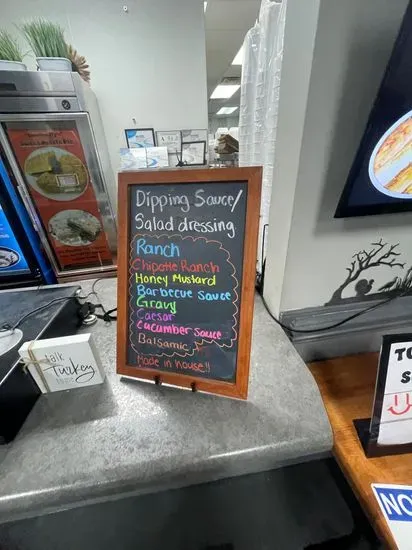 Dipping Sauce/
Salad dressing
Ranch
Chipotle Ranch
Honey Mustard
Barbecue Sauce
Gravy
Caesar
Cucumber Sauce
Balsamic
Made in house!!
talk
Turkey
TO
S
NO